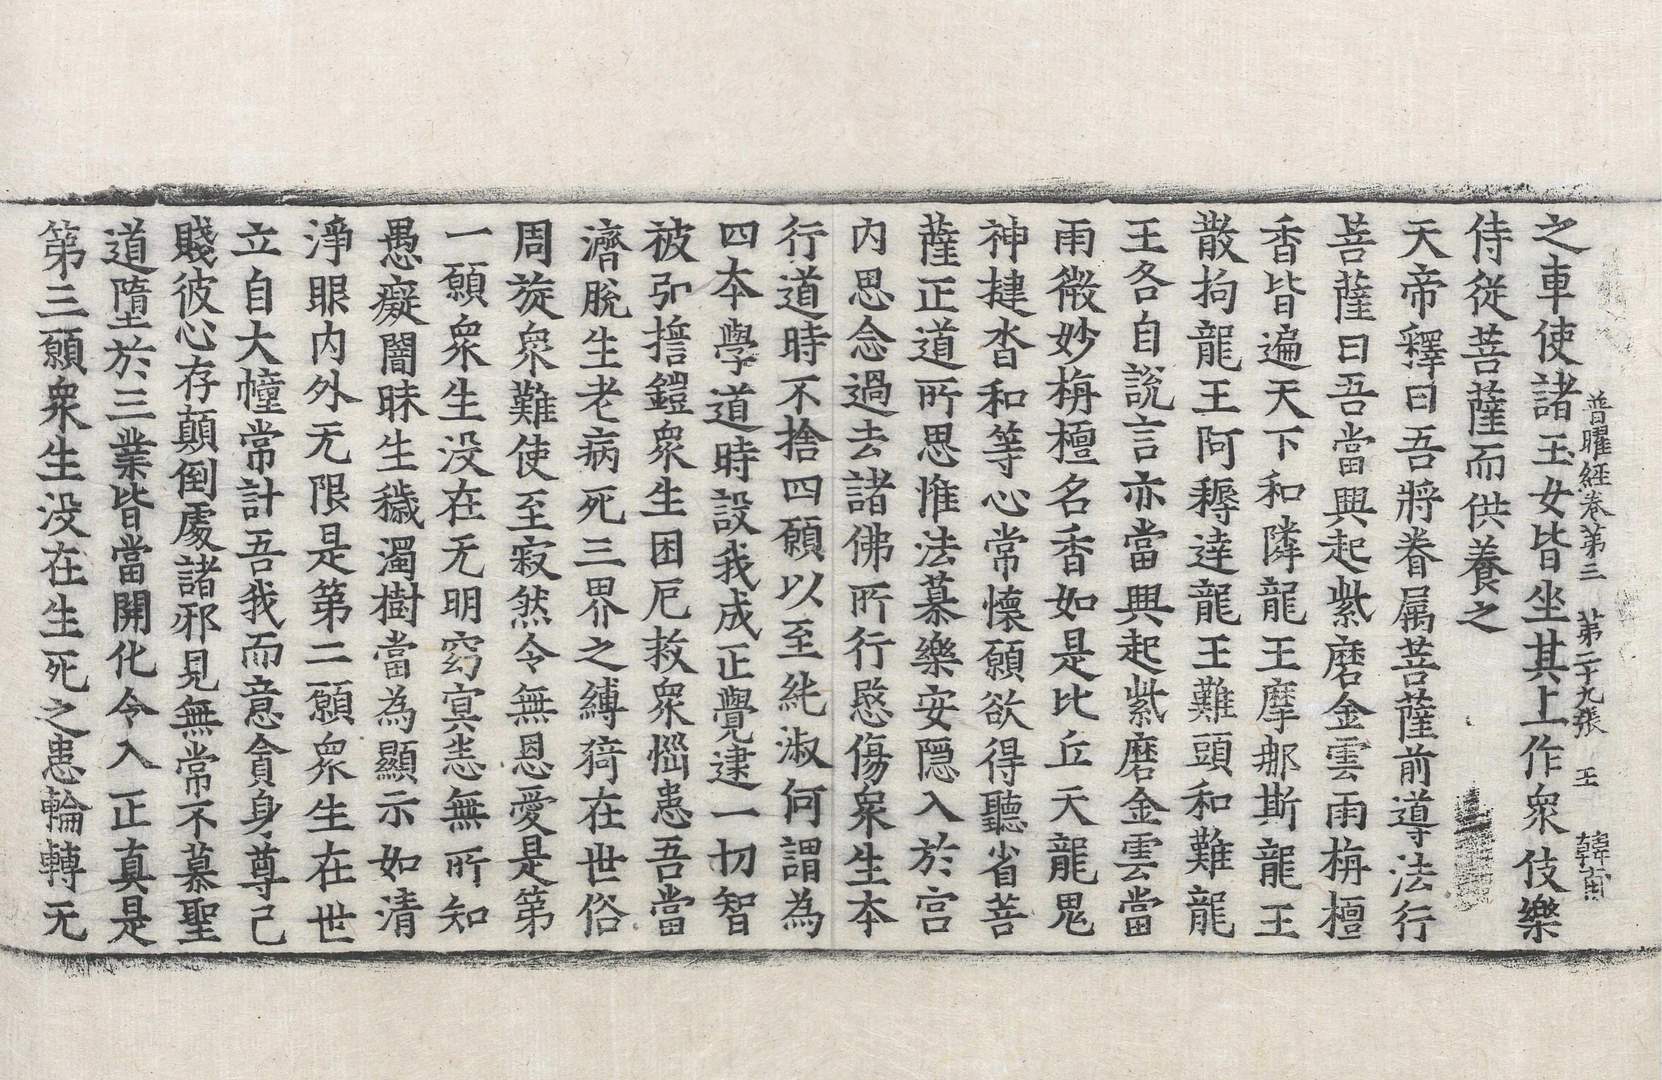 普曜經卷第三　第二十九張　王　韓甫
之車使諸玉女皆坐其上作衆伎樂
侍從菩薩而供養之
天帝釋曰吾將眷属菩薩前導法行
菩薩曰吾當興起紫磨金雲雨栴檀
香皆遍天下和隣龍王摩那斯龍王
散拘龍王阿耨達龍王難頭和難龍
王各自說言亦當興起紫磨金雲當
雨微妙栴檀名香如是比丘天龍鬼
神揵沓和等心常懷願欲得聽省菩
薩正道所思惟法慕樂安隱入於宮
内思念過去諸佛所行愍傷衆生本
行道時不捨四願以至純淑何謂為
四本學道時設我成正覺逮一切智
被弘誓鎧衆生困厄救衆惱患吾當
濟脫生老病死三界之縛猗在世俗
周旋衆難使至寂然令無恩愛是第
一願衆生没在无明窈冥恚無所知
愚癡闇昧生穢濁樹當為顯示如清
淨眼内外无限是第二願衆生在世
立自大幢常計吾我而意貪身尊己
賤彼心存顛倒處諸邪見無常不慕聖
道墮於三業皆當開化令入正真是
第三願衆生没在生死之患輪轉无